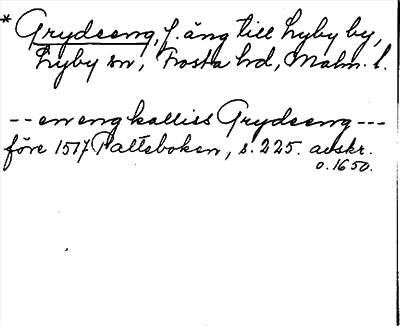 * Grydseng, f. äng till Lyby by,
Lyby sn, Frosta hd, Malm. l.
-- en eng kalliss Grydseng ---
före 1517 Palteboken, s. 225. avskr.
o. 1650.